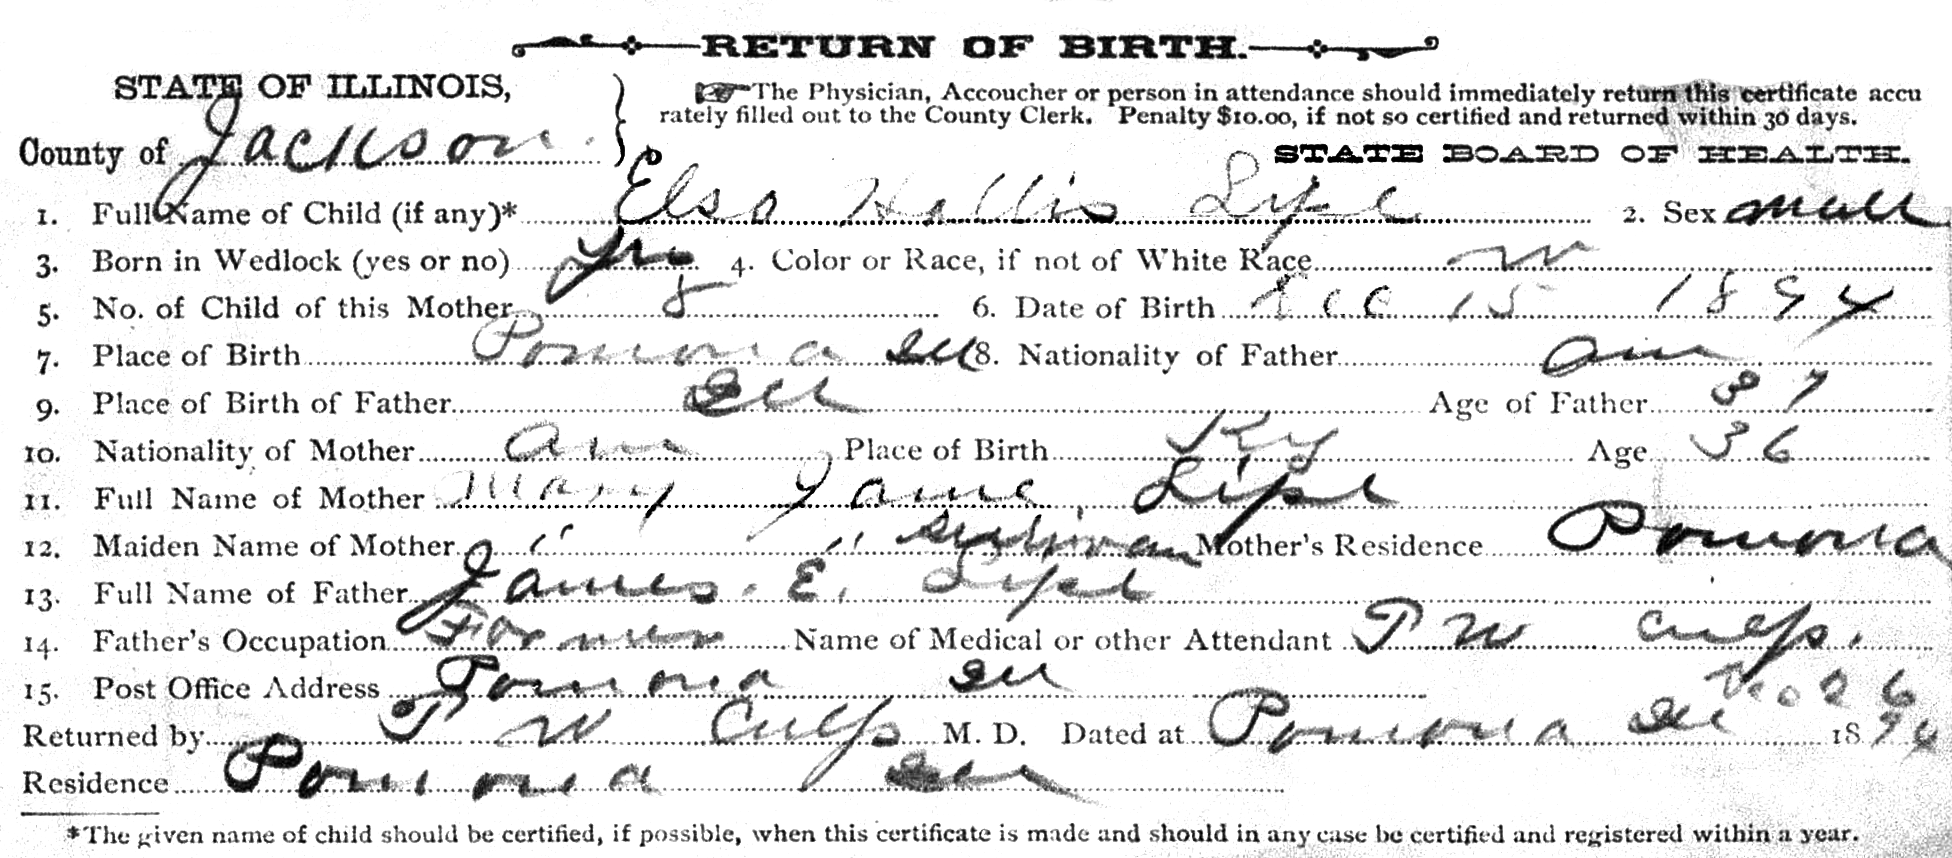 RETURN OF BIRTH.
STATE OF ILLINOIS,
County of Jackson.
The Physician, Accoucher or person in attendance should immediately return this certificate accu
rately filled out to the County Clerk. Penalty $10.00, if not so certified and returned within 30 days.
STATE BOARD OF HEALTH.
1. Full Name of Child (if any)* Elso Hollis Lipe 2. Sex Male
3. Born in Wedlock (yes or no) yes 4. Color or Race, if not of White Race W
5. No. of Child of this Mother 8 6. Date of Birth Dec 15 1894
7. Place of Birth Pomona Ill 8. Nationality of Father Am
9. Place of Birth of Father Ill Age of Father 37
10. Nationality of Mother Am Place of Birth Ky Age 36
11. Full Name of Mother Mary Jane Lipe
12. Maiden Name of Mother " " Sullivan Mother's Residence Pomona
13. Full Name of Father James. E. Lipe
14. Father's Occupation Farmer Name of Medical or other Attendant T W Culp.
15. Post Office Address Pomona Ill
Returned by T W Culp M. D. Dated at Pomona Ill 26 1894
Residence Pomona Ill
*The given name of child should be certified, if possible, when this certificate is made and should in any case be certified and registered within a year.